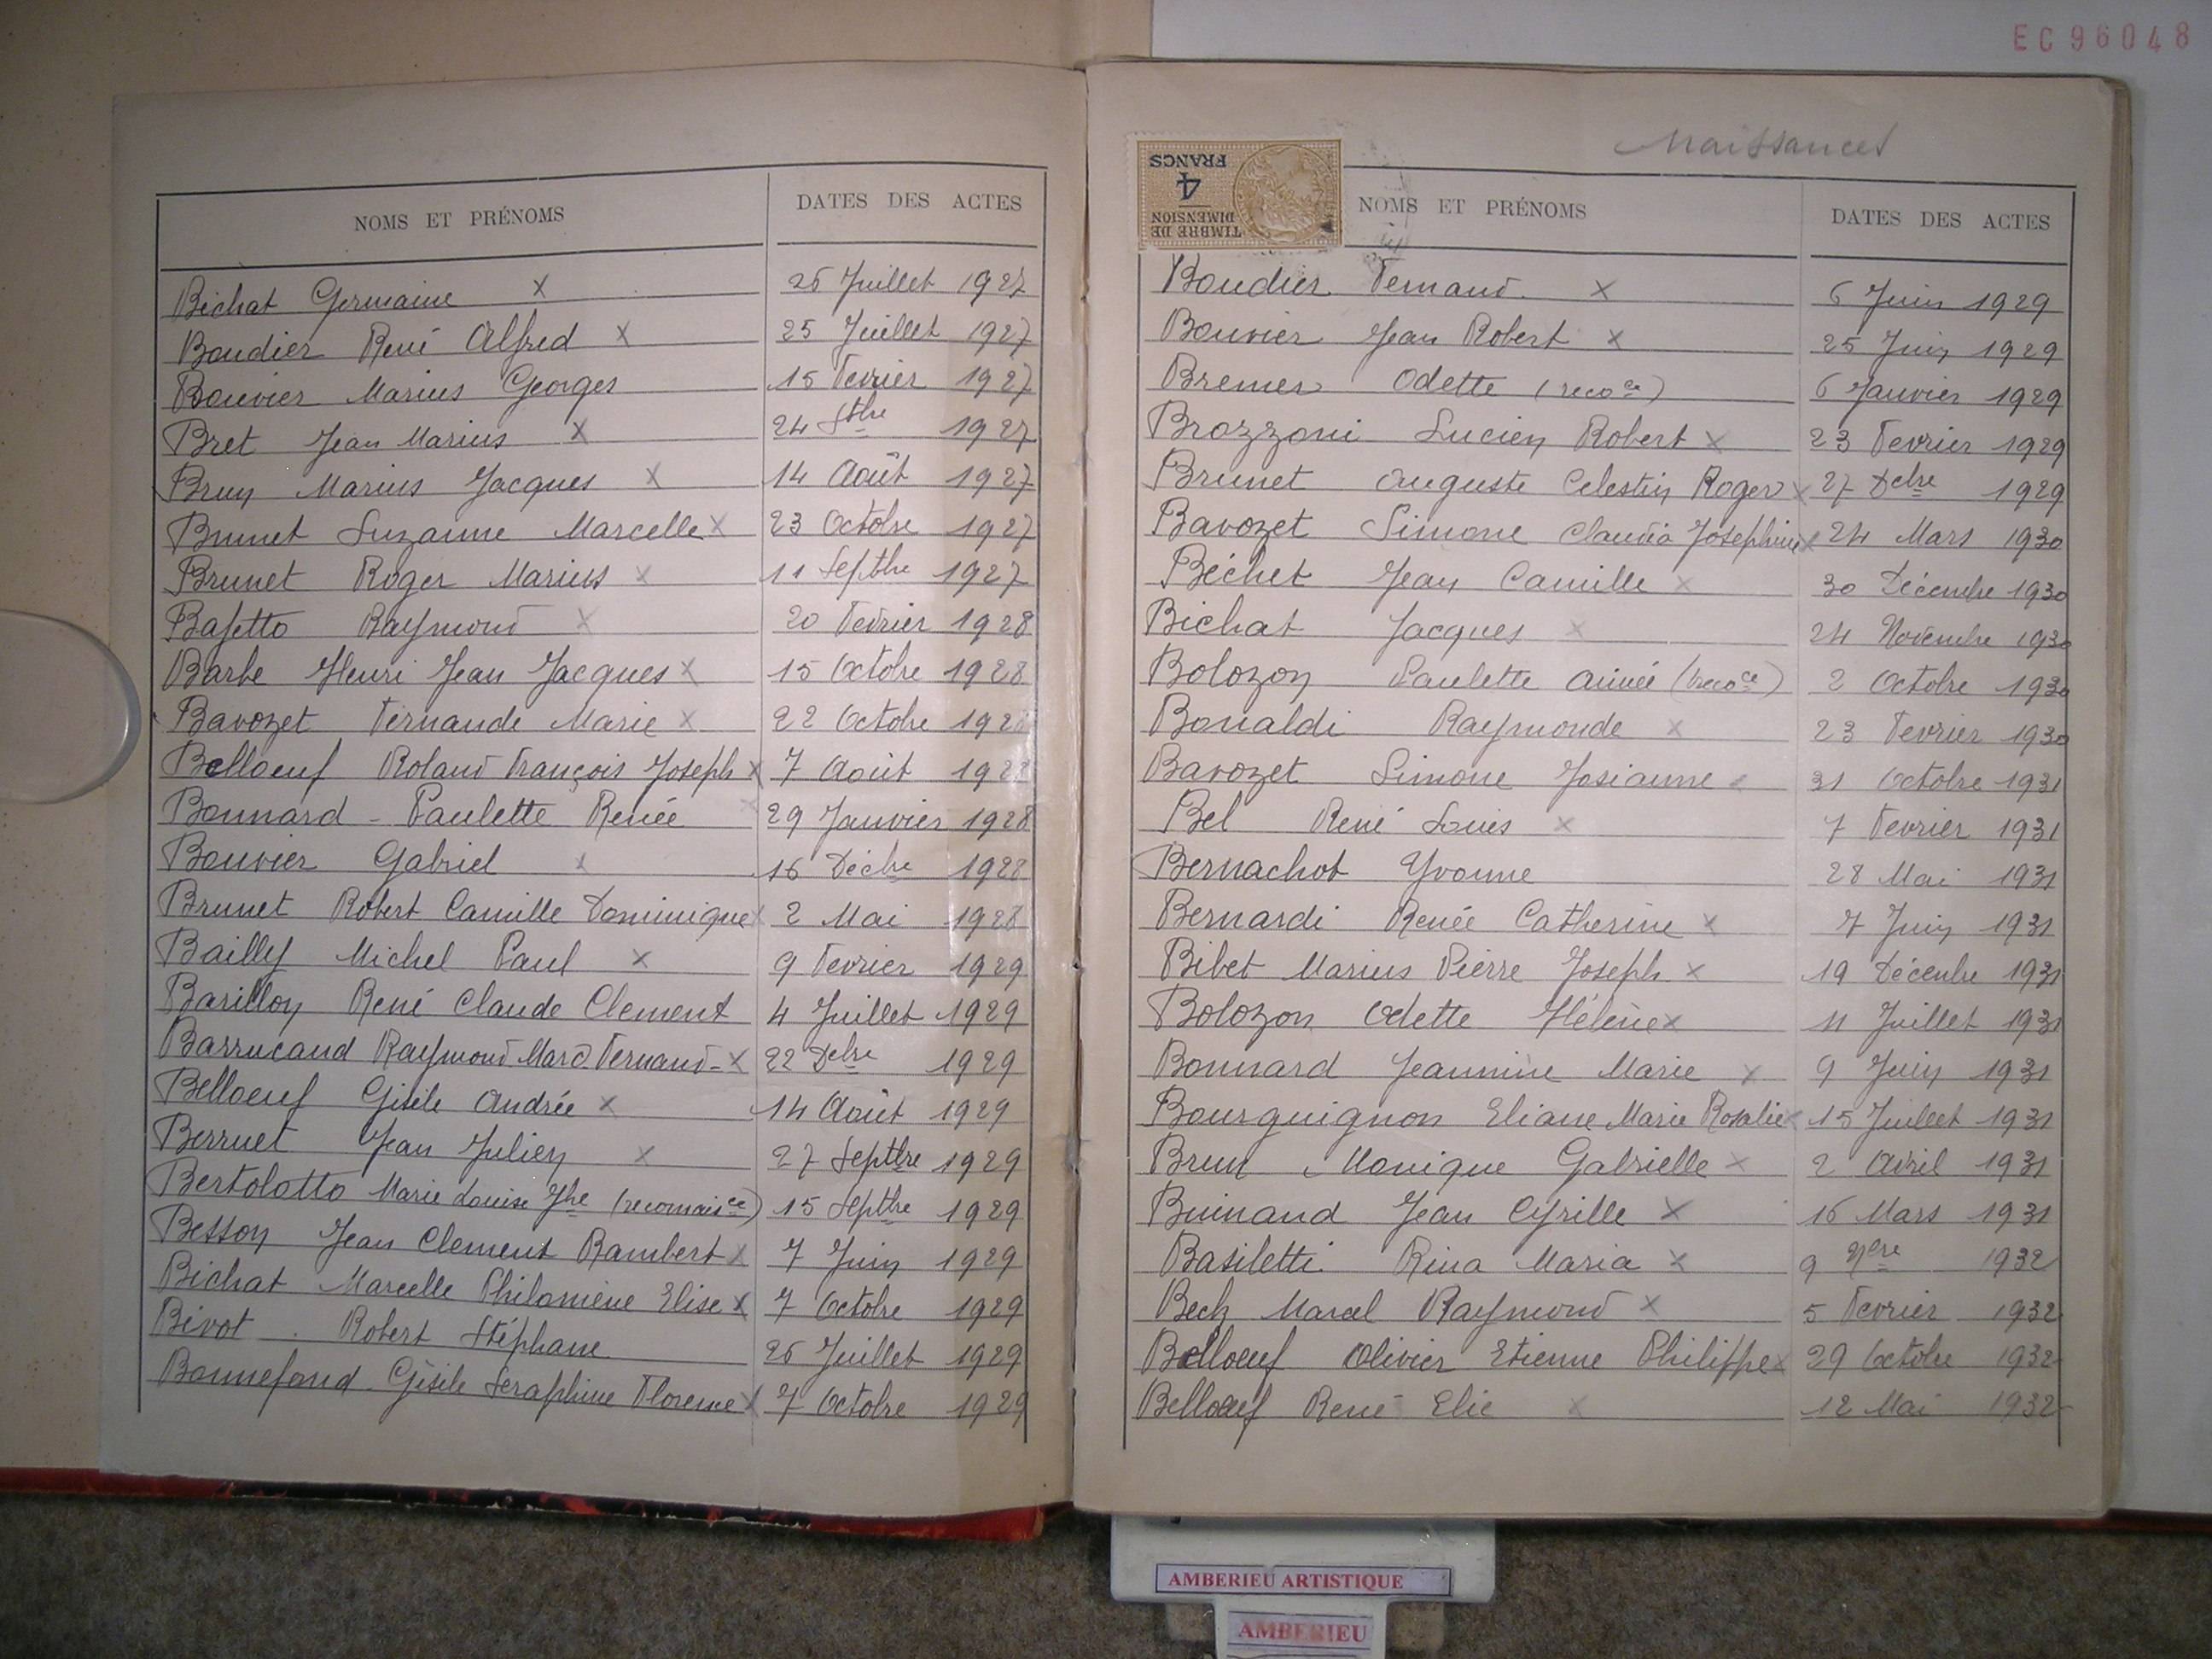 EC96048
NOMS ET PRÉNOMS DATES DES ACTES
Bichat Germaine x 26 Juillet 1927
Boudier René Alfred x 25 Juillet 1927
Bouvier Marius Georges 15 Fevrier 1927
Bret Jean Marius x 24 1927
Brun Marius Jacques x 14 Août 1927
Brunet Suzanne Marcelle x 23 Octobre 1927
Brunet Roger Marius x 11 Septbre 1927
Bafetto Raymond x 20 Fevrier 1928
Barbe Henri Jean Jacques x 15 Octobre 1928
Bavozet Fernande Marie x 22 Octobre 1928
Belloeuf Roland François Joseph x 7 Août 1928
Bonnard - Paulette Renée x 29 Janvier 1928
Bouvier Gabriel x 16 Décbre 1928
Brunet Robert Camille Dominique x 2 Mai 1928
Bailly Michel Paul x 9 Fevrier 1929
Barillon René Claude Clement 4 Juillet 1929
Barrucand Raymond Marc Fernand - x 22 Dcbre 1929
Belloeuf Gisèle Andrée x 14 Août 1929
Berruet Jean Julien x 27 Septbre 1929
Bertolotto Marie Louise Jhe (reconnaisce) 15 Septbre 1929
Besson Jean Clement Rambert x 7 Juin 1929
Bichat Marcelle Philomène Elise x 7 Octobre 1929
Bivot . Robert Stéphane 26 Juillet 1929
Bonnefond Gisèle Seraphine Florence x 7 Octobre 1929
Naissances
TIMBRE DE DIMENSION
4 FRANCS
NOMS ET PRÉNOMS DATES DES ACTES
Boudier Fernand x 6 Juin 1929
Bouvier Jean Robert x 25 Juin 1929
Bremer Odette (recoce) 6 Janvier 1929
Brozzoni Lucien Robert x 23 Fevrier 1929
Brunet Auguste Celestin Roger x 27 Dcbre 1929
Bavozet Simone Claudia Josephine x 24 Mars 1930
Béchet Jean Camille x 30 Décembre 1930
Bichat Jacques x 24 Novembre 1930
Bolozon Paulette Aimée (recoce) 2 Octobre 1930
Bonaldi Raymonde x 23 Fevrier 1930
Bavozet Simone Josianne x 31 Octobre 1931
Bel René Louis x 7 Fevrier 1931
Bernachot Yvonne 28 Mai 1931
Bernardi Renée Catherine x 7 Juin 1931
Bibet Marius Pierre Joseph x 19 Décembre 1931
Bolozon Odette Hélène x 11 Juillet 1931
Bonnard Jeannine Marie x 9 Juin 1931
Bourguignon Eliane Marie Rosalie x 15 Juillet 1931
Brun Monique Gabrielle x 2 Avril 1931
Buinand Jean Cyrille x 16 Mars 1931
Basiletti Rina Maria x 9 1932
Bech Marcel Raymond x 5 Fevrier 1932
Belloeuf Olivier Etienne Philippe x 29 Octobre 1932
Belloeuf René Elie x 12 Mai 1932
AMBERIEU ARTISTIQUE
AMBERIEU